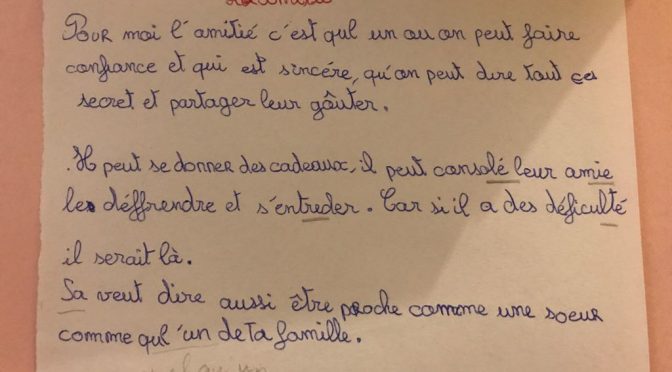 Pour moi l'amitié c'est qul un ou on peut faire
confiance et qui est sincére, qu'on peut dire tout ces
secret et partager leur goûter.
. Il peut se donner des cadeaux, il peut consolé leur amie
les déffrendre et s'entreder. Car si il a des déficulté
il serait là.
Sa veut dire aussi être proche comme une soeur
comme qul'un de ta famille.